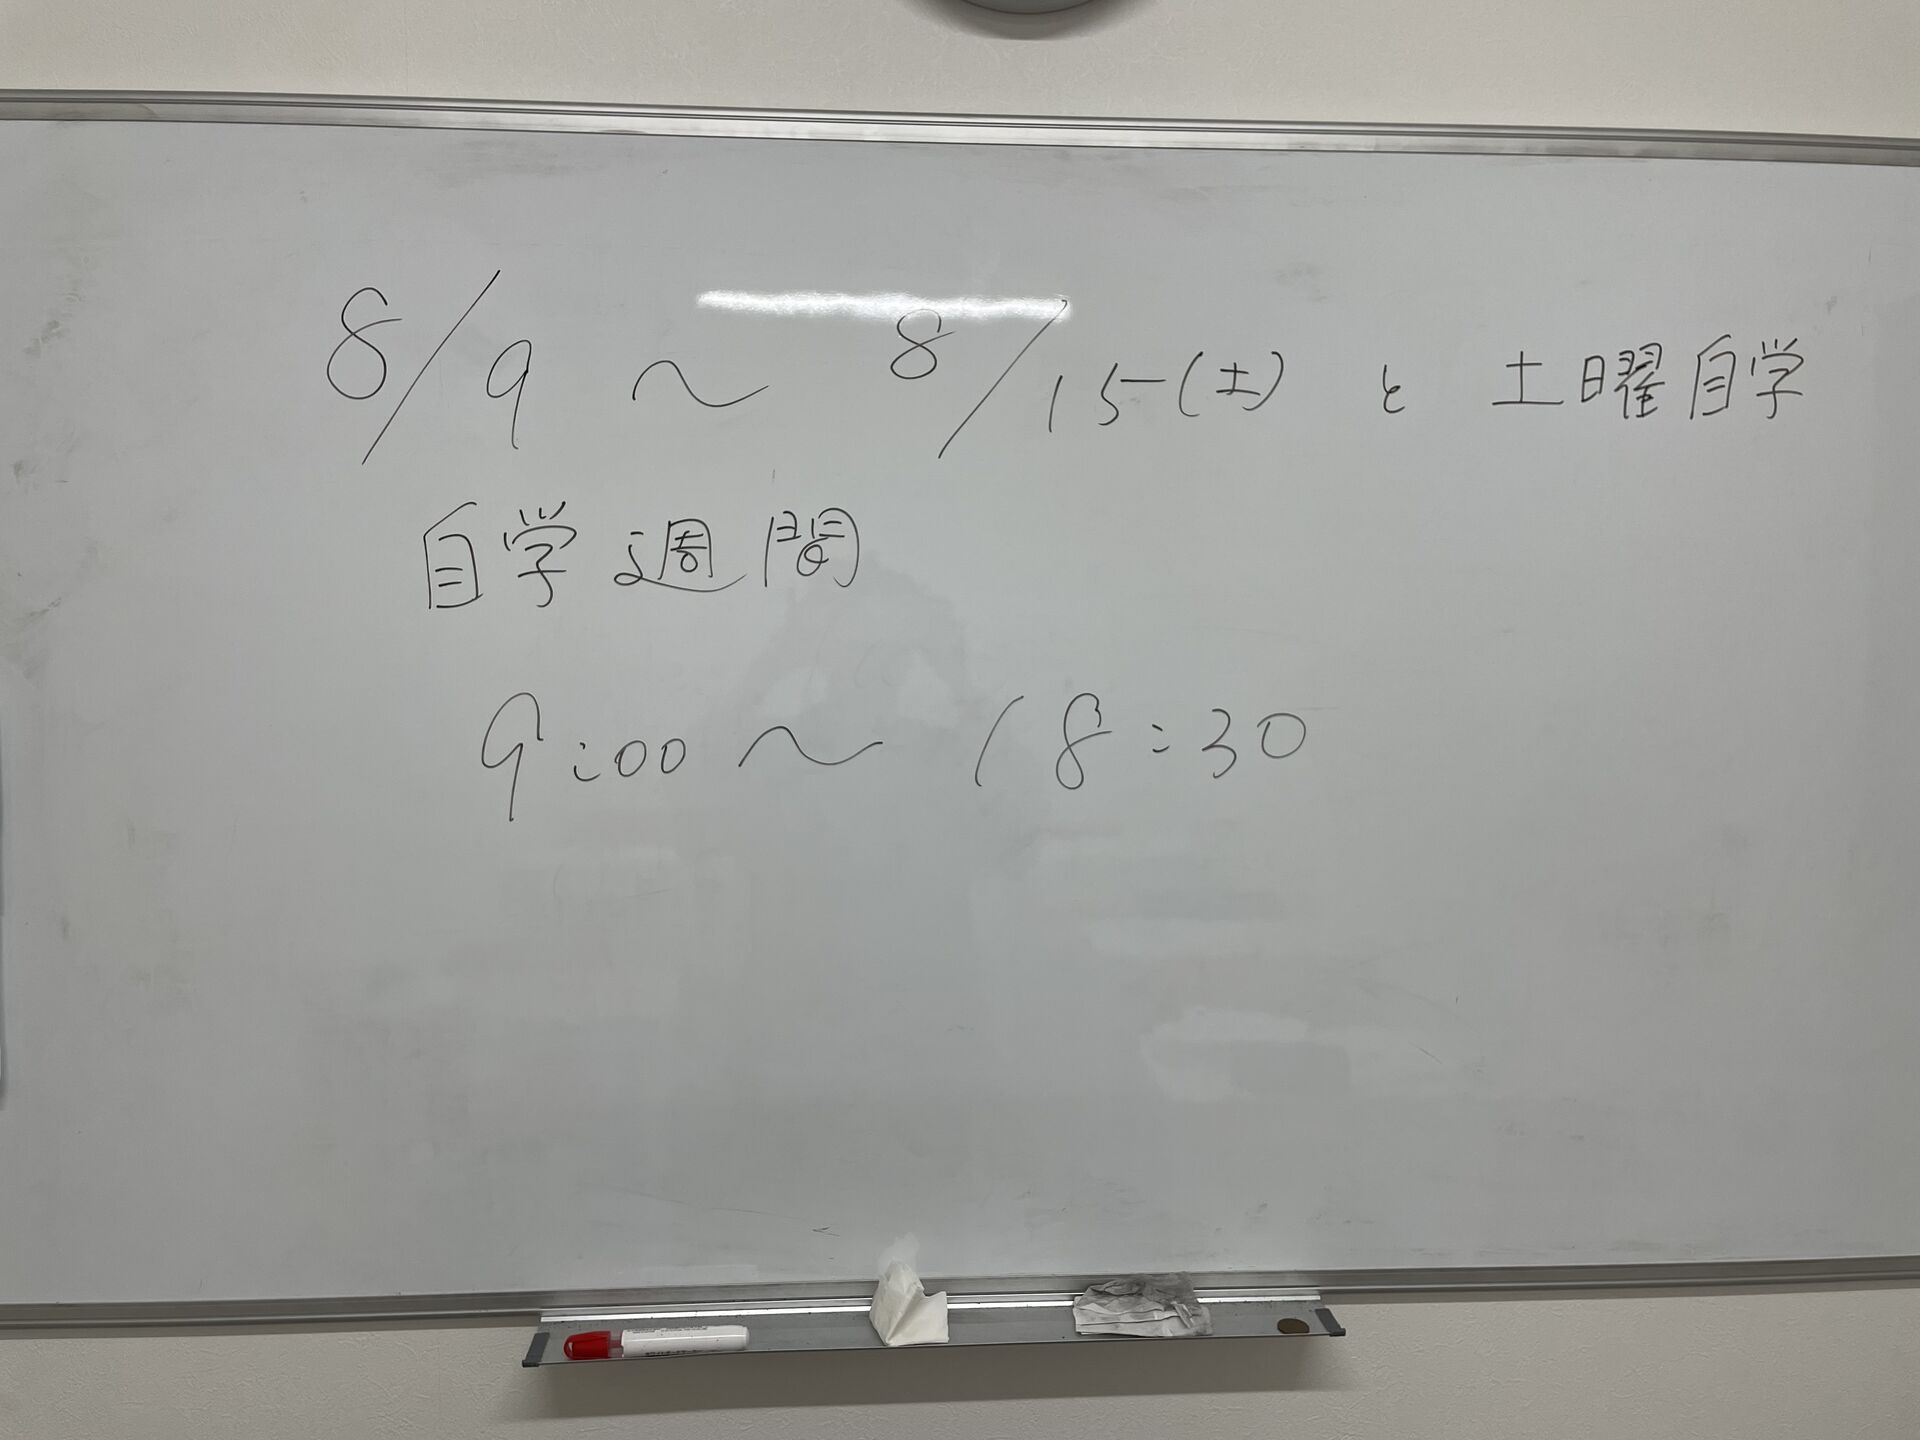 8/9 ～ 8/15(土) と 土曜自学
自学週間
9:00 ～ 18:30